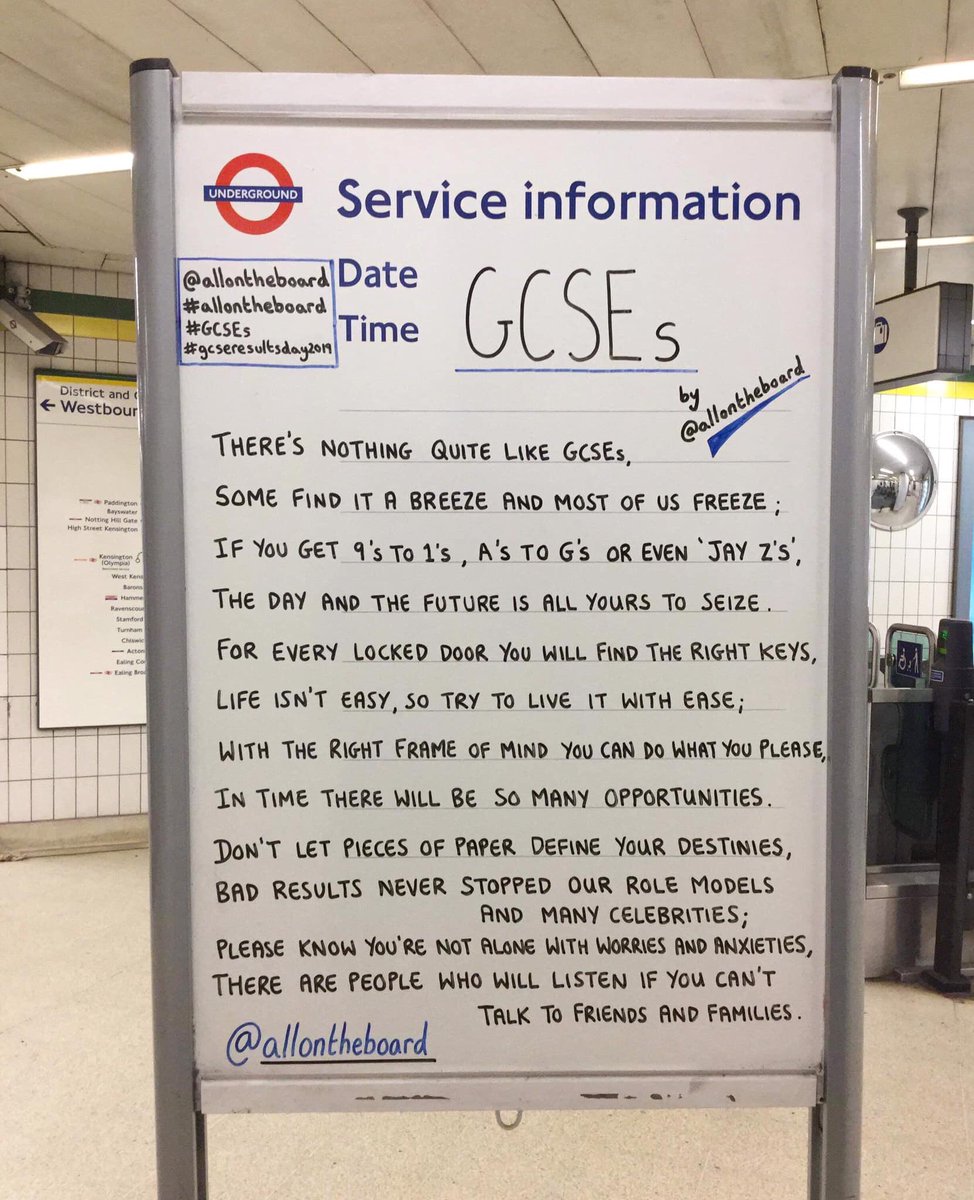 UNDERGROUND
Service information
@allontheboard
#allontheboard
#GCSEs
#gcseresultsday2019
Date
Time
GCSEs
by
@allontheboard
THERE'S NOTHING QUITE LIKE GCSEs,
SOME FIND IT A BREEZE AND MOST OF US FREEZE;
IF YOU GET 9's TO 1's, A's TO G's OR EVEN 'JAY Z's',
THE DAY AND THE FUTURE IS ALL YOURS TO SEIZE.
FOR EVERY LOCKED DOOR YOU WILL FIND THE RIGHT KEYS,
LIFE ISN'T EASY, SO TRY TO LIVE IT WITH EASE;
WITH THE RIGHT FRAME OF MIND YOU CAN DO WHAT YOU PLEASE,
IN TIME THERE WILL BE SO MANY OPPORTUNITIES.
DON'T LET PIECES OF PAPER DEFINE YOUR DESTINIES,
BAD RESULTS NEVER STOPPED OUR ROLE MODELS
AND MANY CELEBRITIES;
PLEASE KNOW YOU'RE NOT ALONE WITH WORRIES AND ANXIETIES,
THERE ARE PEOPLE WHO WILL LISTEN IF YOU CAN'T
TALK TO FRIENDS AND FAMILIES.
@allontheboard
District and
← Westbour
Paddington
Bayswater
Notting Hill Gate
High Street Kensington
Kensington
(Olympia)
West Kens
Barons
Hamme
Ravenscou
Stamford
Turnham
Chiswi
Acton
Ealing Co
Ealing Bro